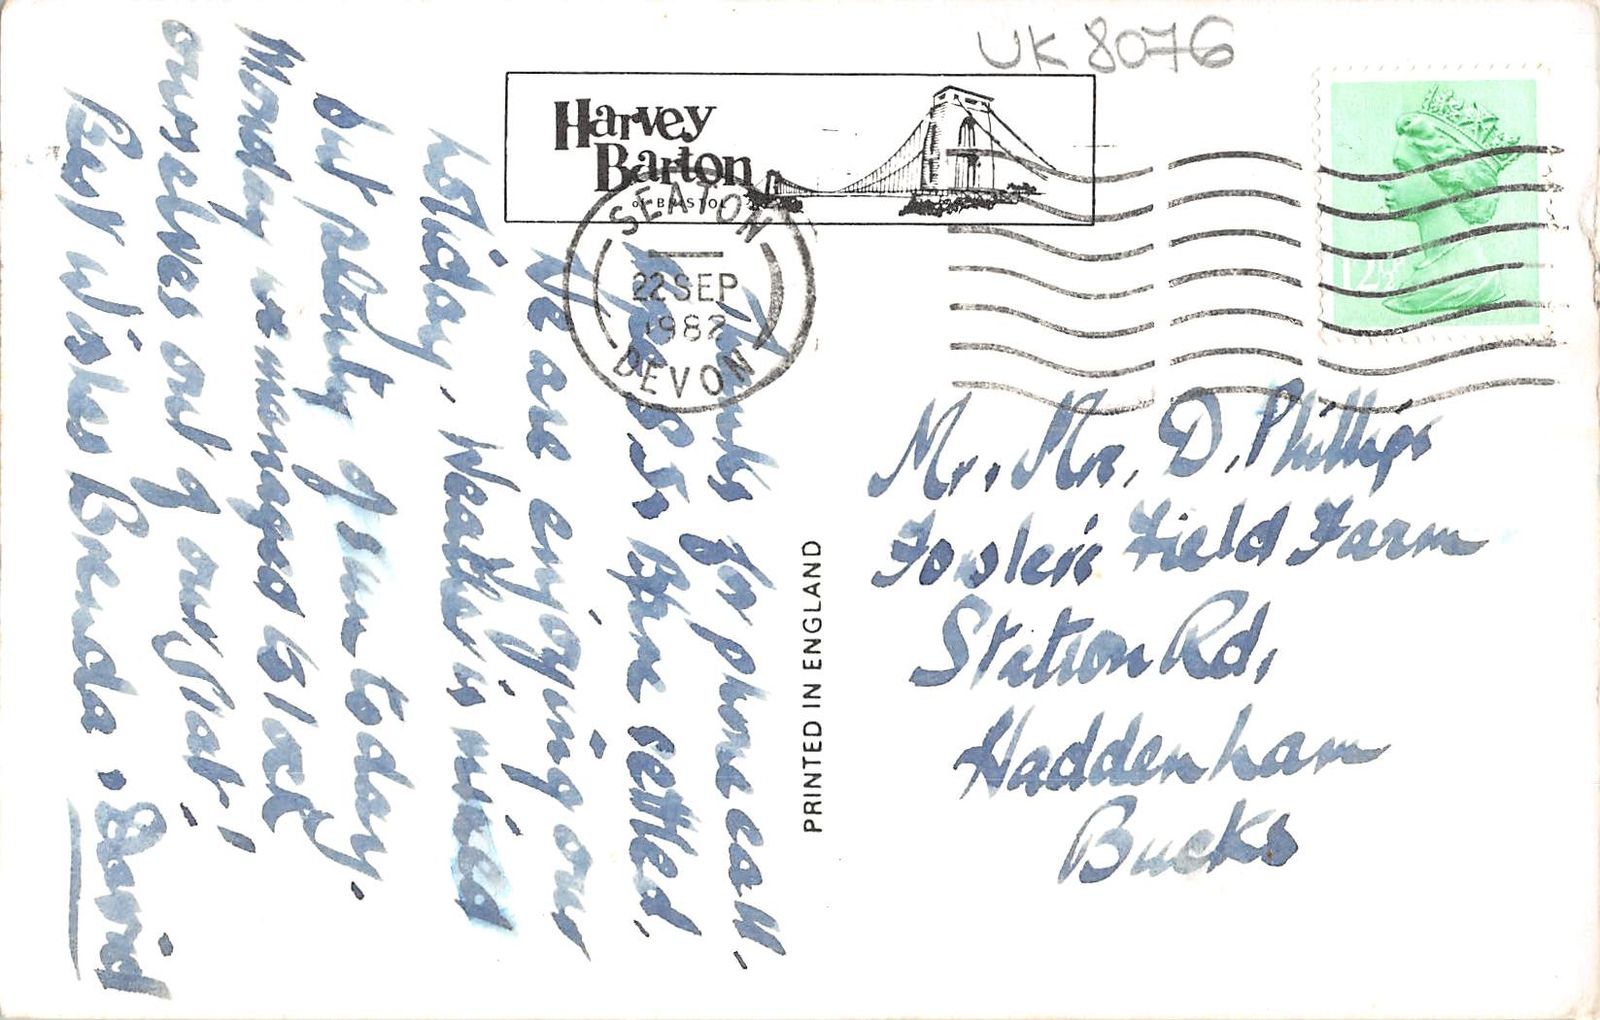 UK 8076
Harvey
Barton
OF BRISTOL
SEATON
22 SEP
1982
DEVON
12½P
Thanks for phone call.
Hope S.S. Bpine settled.
We are enjoying our
holiday, Weather is mixed
but plenty of sun today.
Monday we managed to lock
ourselves out of our flat!
Best Wishes Brenda, David
PRINTED IN ENGLAND
Mr, Mrs, D. Phillips
Fowler's Field Farm
Station Rd,
Haddenham
Bucks